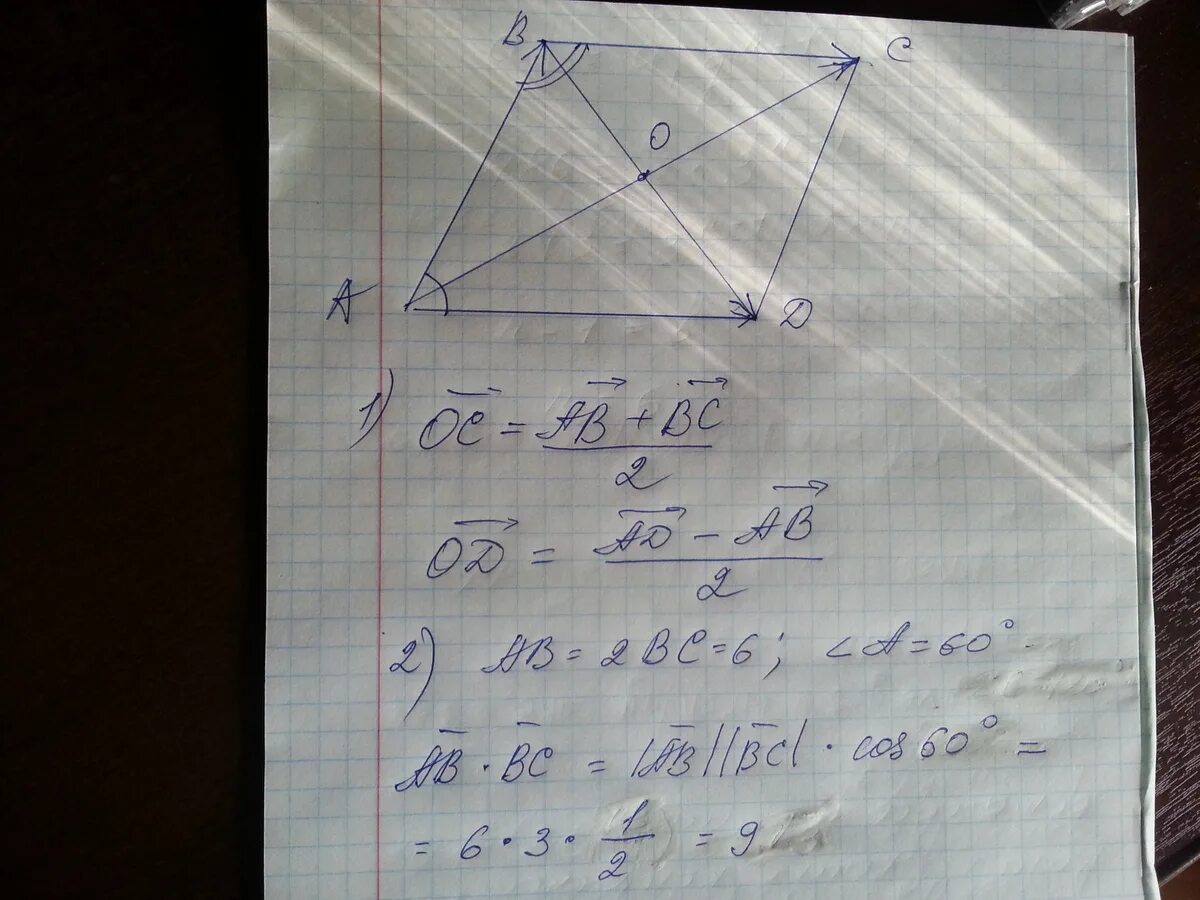 B C
O
A D
1) \overline{OC} = \frac{\overrightarrow{AB} + \overrightarrow{BC}}{2}
\overrightarrow{OD} = \frac{\overrightarrow{AD} - \overrightarrow{AB}}{2}
2) AB = 2BC = 6; ∠A = 60°
\overline{AB} · \overline{BC} = |\overline{AB}||\overline{BC}| · cos 60° =
= 6 · 3 · \frac{1}{2} = 9